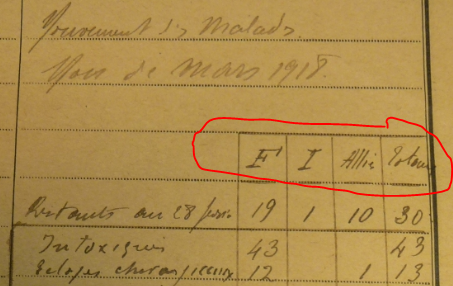 Mouvement des Malades.
Mois de Mars 1918.
F I Alliés Totaux
Restants au 28 févr. 19 1 10 30
Intoxiqués 43 43
12 1 13